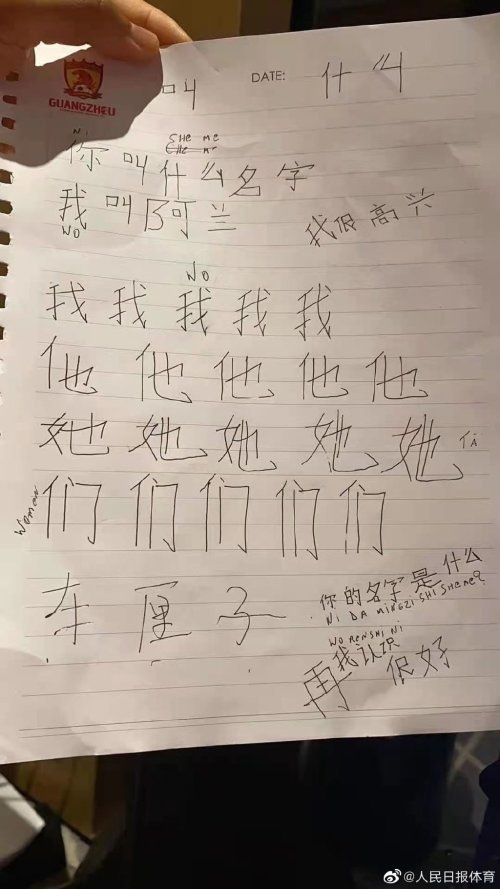 GUANGZHOU
叫 DATE: 什么
NI SHE ME
CHE ME
你叫什么名字
我叫阿兰
WO
我很高兴
WO
我 我 我 我 我
他 他 他 他 他
她 她 她 她 她 TA
women 们 们 们 们 们
车 厘 子
你的名字是什么
NI DA MINGZI SHI SHEME?
WO RENSHI NI
我认识
再 很好
@人民日报体育